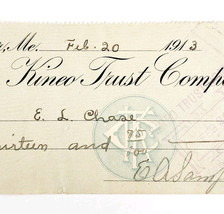 r, Me. Feb. 20 1913
Kineo Trust Compa
E. L. Chase
irteen and 95/100
E A Samp